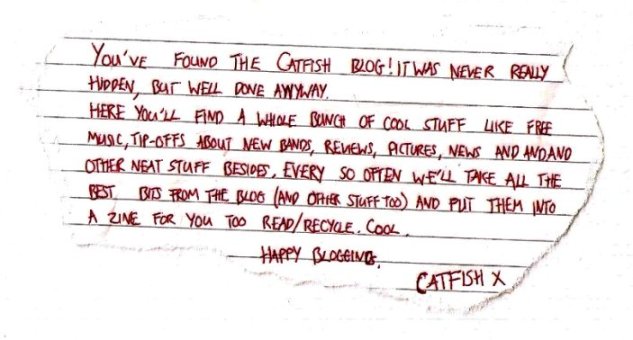 YOU'VE FOUND THE CATFISH BLOG! IT WAS NEVER REALLY
HIDDEN, BUT WELL DONE ANYWAY.
HERE YOU'LL FIND A WHOLE BUNCH OF COOL STUFF LIKE FREE
MUSIC, TIP-OFFS ABOUT NEW BANDS, REVIEWS, PICTURES, NEWS AND ANDAND
OTHER NEAT STUFF BESIDES. EVERY SO OFTEN WE'LL TAKE ALL THE
BEST BITS FROM THE BLOG (AND OTHER STUFF TOO) AND PUT THEM INTO
A ZINE FOR YOU TOO READ/RECYCLE. COOL.
HAPPY BLOGGING.
CATFISH X